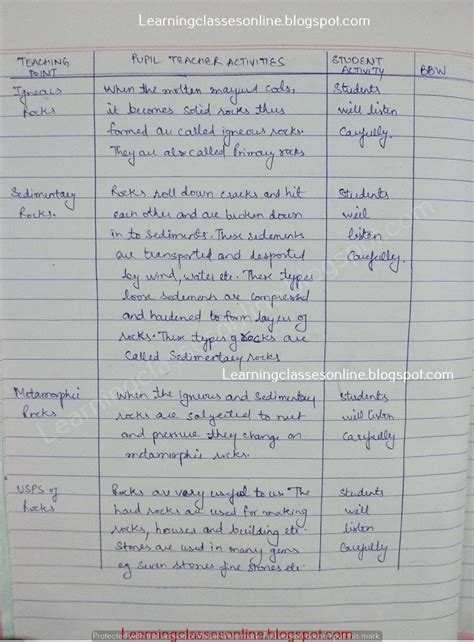 Learningclassesonline.blogspot.com
TEACHING POINT | PUPIL TEACHER ACTIVITIES | STUDENT ACTIVITY | BBW
Igneous | When the molten cools, | Students
Rocks | it becomes solid rocks thus | will listen
formed are called igneous rocks. | Carefully.
They are also called Primary rocks
Sedimentary | Rocks roll down cracks and hit | Students
Rocks. | each other and are broken down | will
in to sediments. These sediments | listen
are transported and | Carefully.
by wind, water etc. These types
loose sediments are compressed
and hardened to form layers of
rocks. These types of rocks are
Called Sedimentary rocks
Learningclassesonline.blogspot.com
Metamorphic | When the igneous and Sedimentary | Students
Rocks | rocks are to | will listen
and pressure they change on | Carefully
metamorphic rocks.
of | Rocks are very useful to us. The | Students
Rocks | hard rocks are used for making | will
rocks, houses and building etc. | listen
Stones are used in many gems | Carefully
eg Seven Stones five Stones etc.
Learningclassesonline.blogspot.com